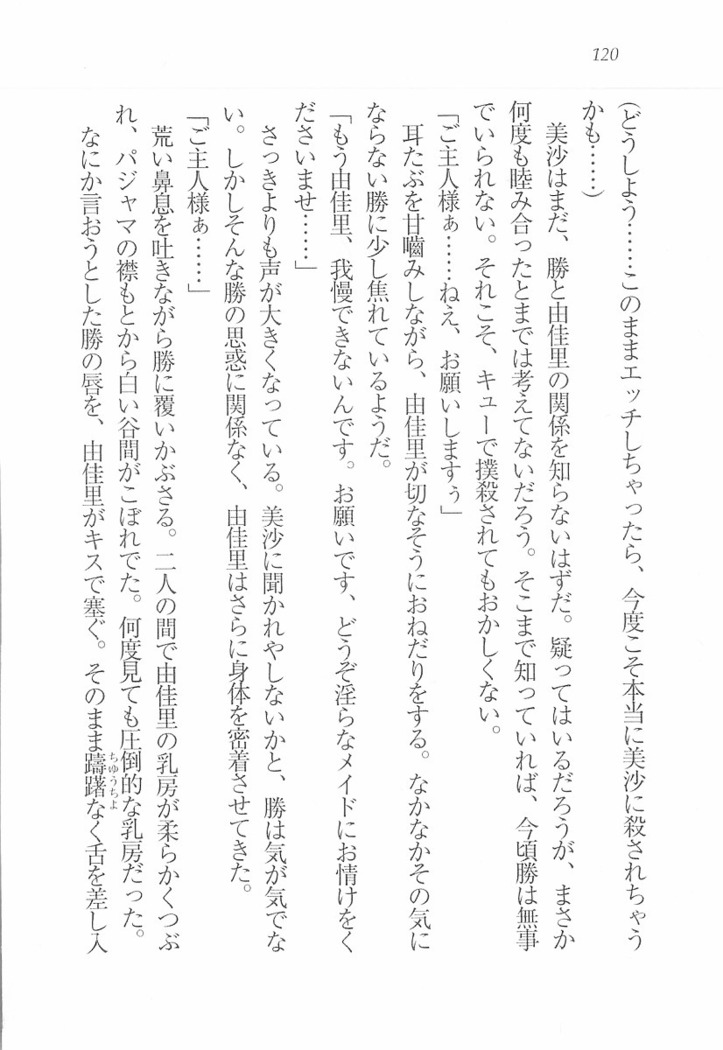 120
(どうしよう……このままエッチしちゃったら、今度こそ本当に美沙に殺されちゃう
かも……)
美沙はまだ、勝と由佳里の関係を知らないはずだ。疑ってはいるだろうが、まさか
何度も睦み合ったとまでは考えてないだろう。そこまで知っていれば、今頃勝は無事
でいられない。それこそ、キューで撲殺されてもおかしくない。
「ご主人様ぁ……ねえ、お願いしますぅ」
耳たぶを甘嚙みしながら、由佳里が切なそうにおねだりをする。なかなかその気に
ならない勝に少し焦れているようだ。
「もう由佳里、我慢できないんです。お願いです、どうぞ淫らなメイドにお情けをく
ださいませ……」
さっきよりも声が大きくなっている。美沙に聞かれやしないかと、勝は気が気でな
い。しかしそんな勝の思惑に関係なく、由佳里はさらに身体を密着させてきた。
「ご主人様ぁ……」
荒い鼻息を吐きながら勝に覆いかぶさる。二人の間で由佳里の乳房が柔らかくつぶ
れ、パジャマの襟もとから白い谷間がこぼれでた。何度見ても圧倒的な乳房だった。
なにか言おうとした勝の唇を、由佳里がキスで塞ぐ。そのまま躊躇なく舌を差し入
ちゅうちょ